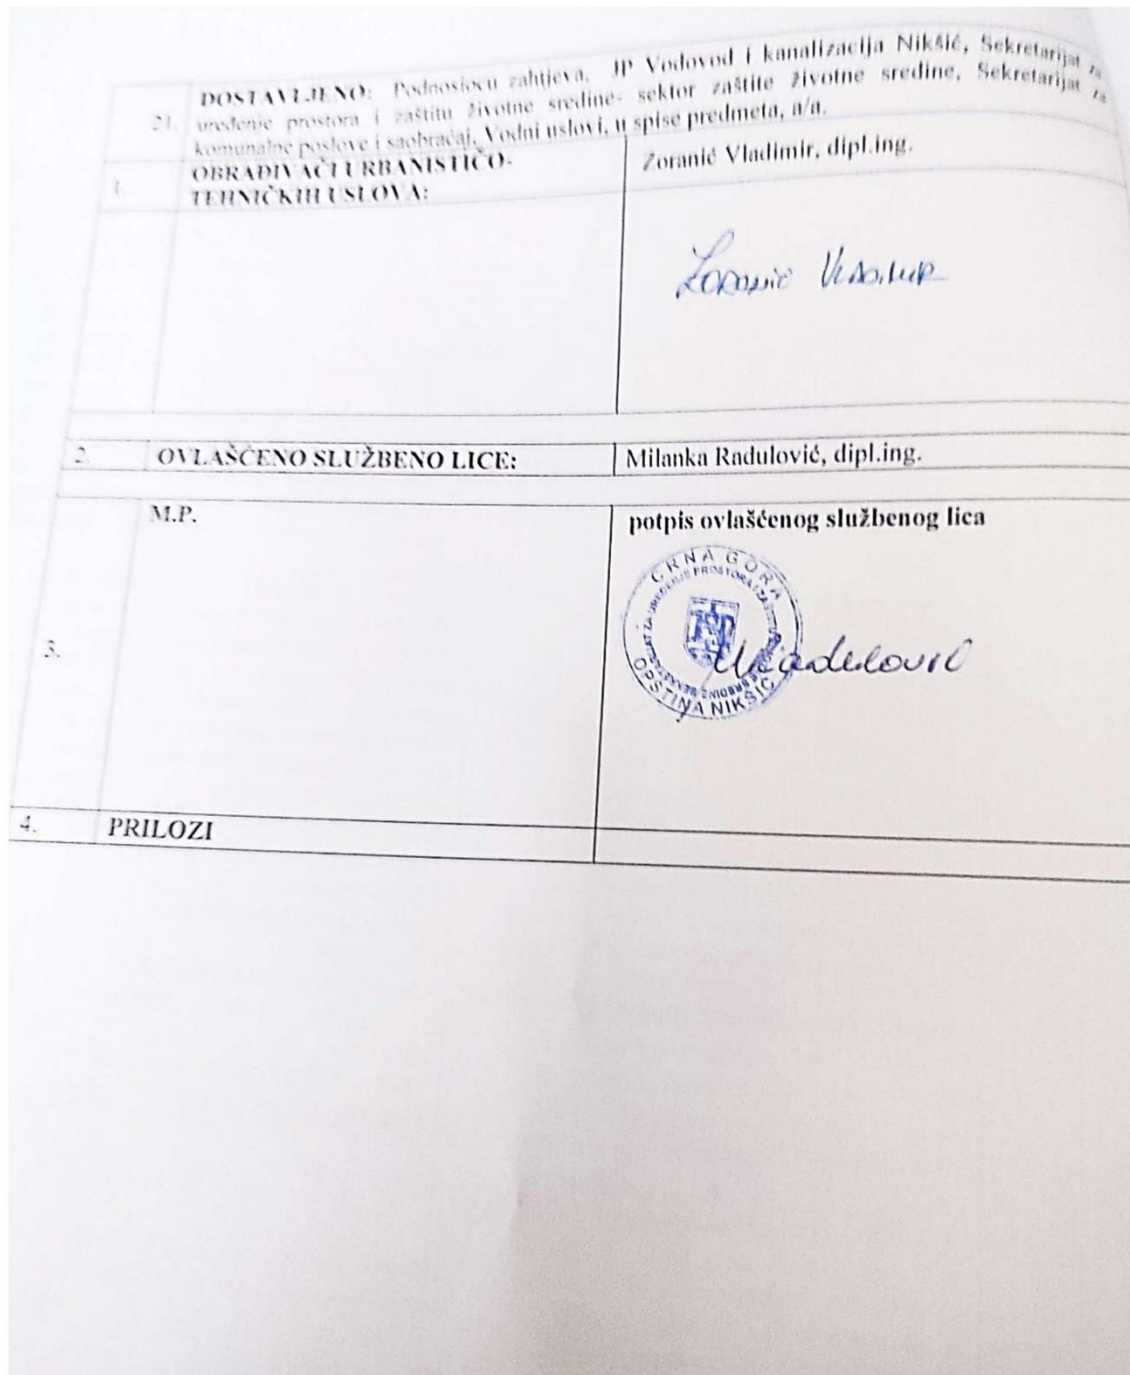 21. DOSTAVLJENO: Podnosiocu zahtjeva, JP Vodovod i kanalizacija Nikšić, Sekretarijat za
uređenje prostora i zaštitu životne sredine- sektor zaštite životne sredine, Sekretarijat za
komunalne poslove i saobraćaj, Vodni uslovi, u spise predmeta, a/a.
1. OBRAĐIVAČI URBANISTIČO-
TEHNIČKIH USLOVA:
Zoranić Vladimir, dipl.ing.
Zoranić Vladimir
2. OVLAŠĆENO SLUŽBENO LICE:
Milanka Radulović, dipl.ing.
3. M.P.
potpis ovlašćenog službenog lica
CRNA GORA
OPŠTINA NIKŠIĆ
4. PRILOZI